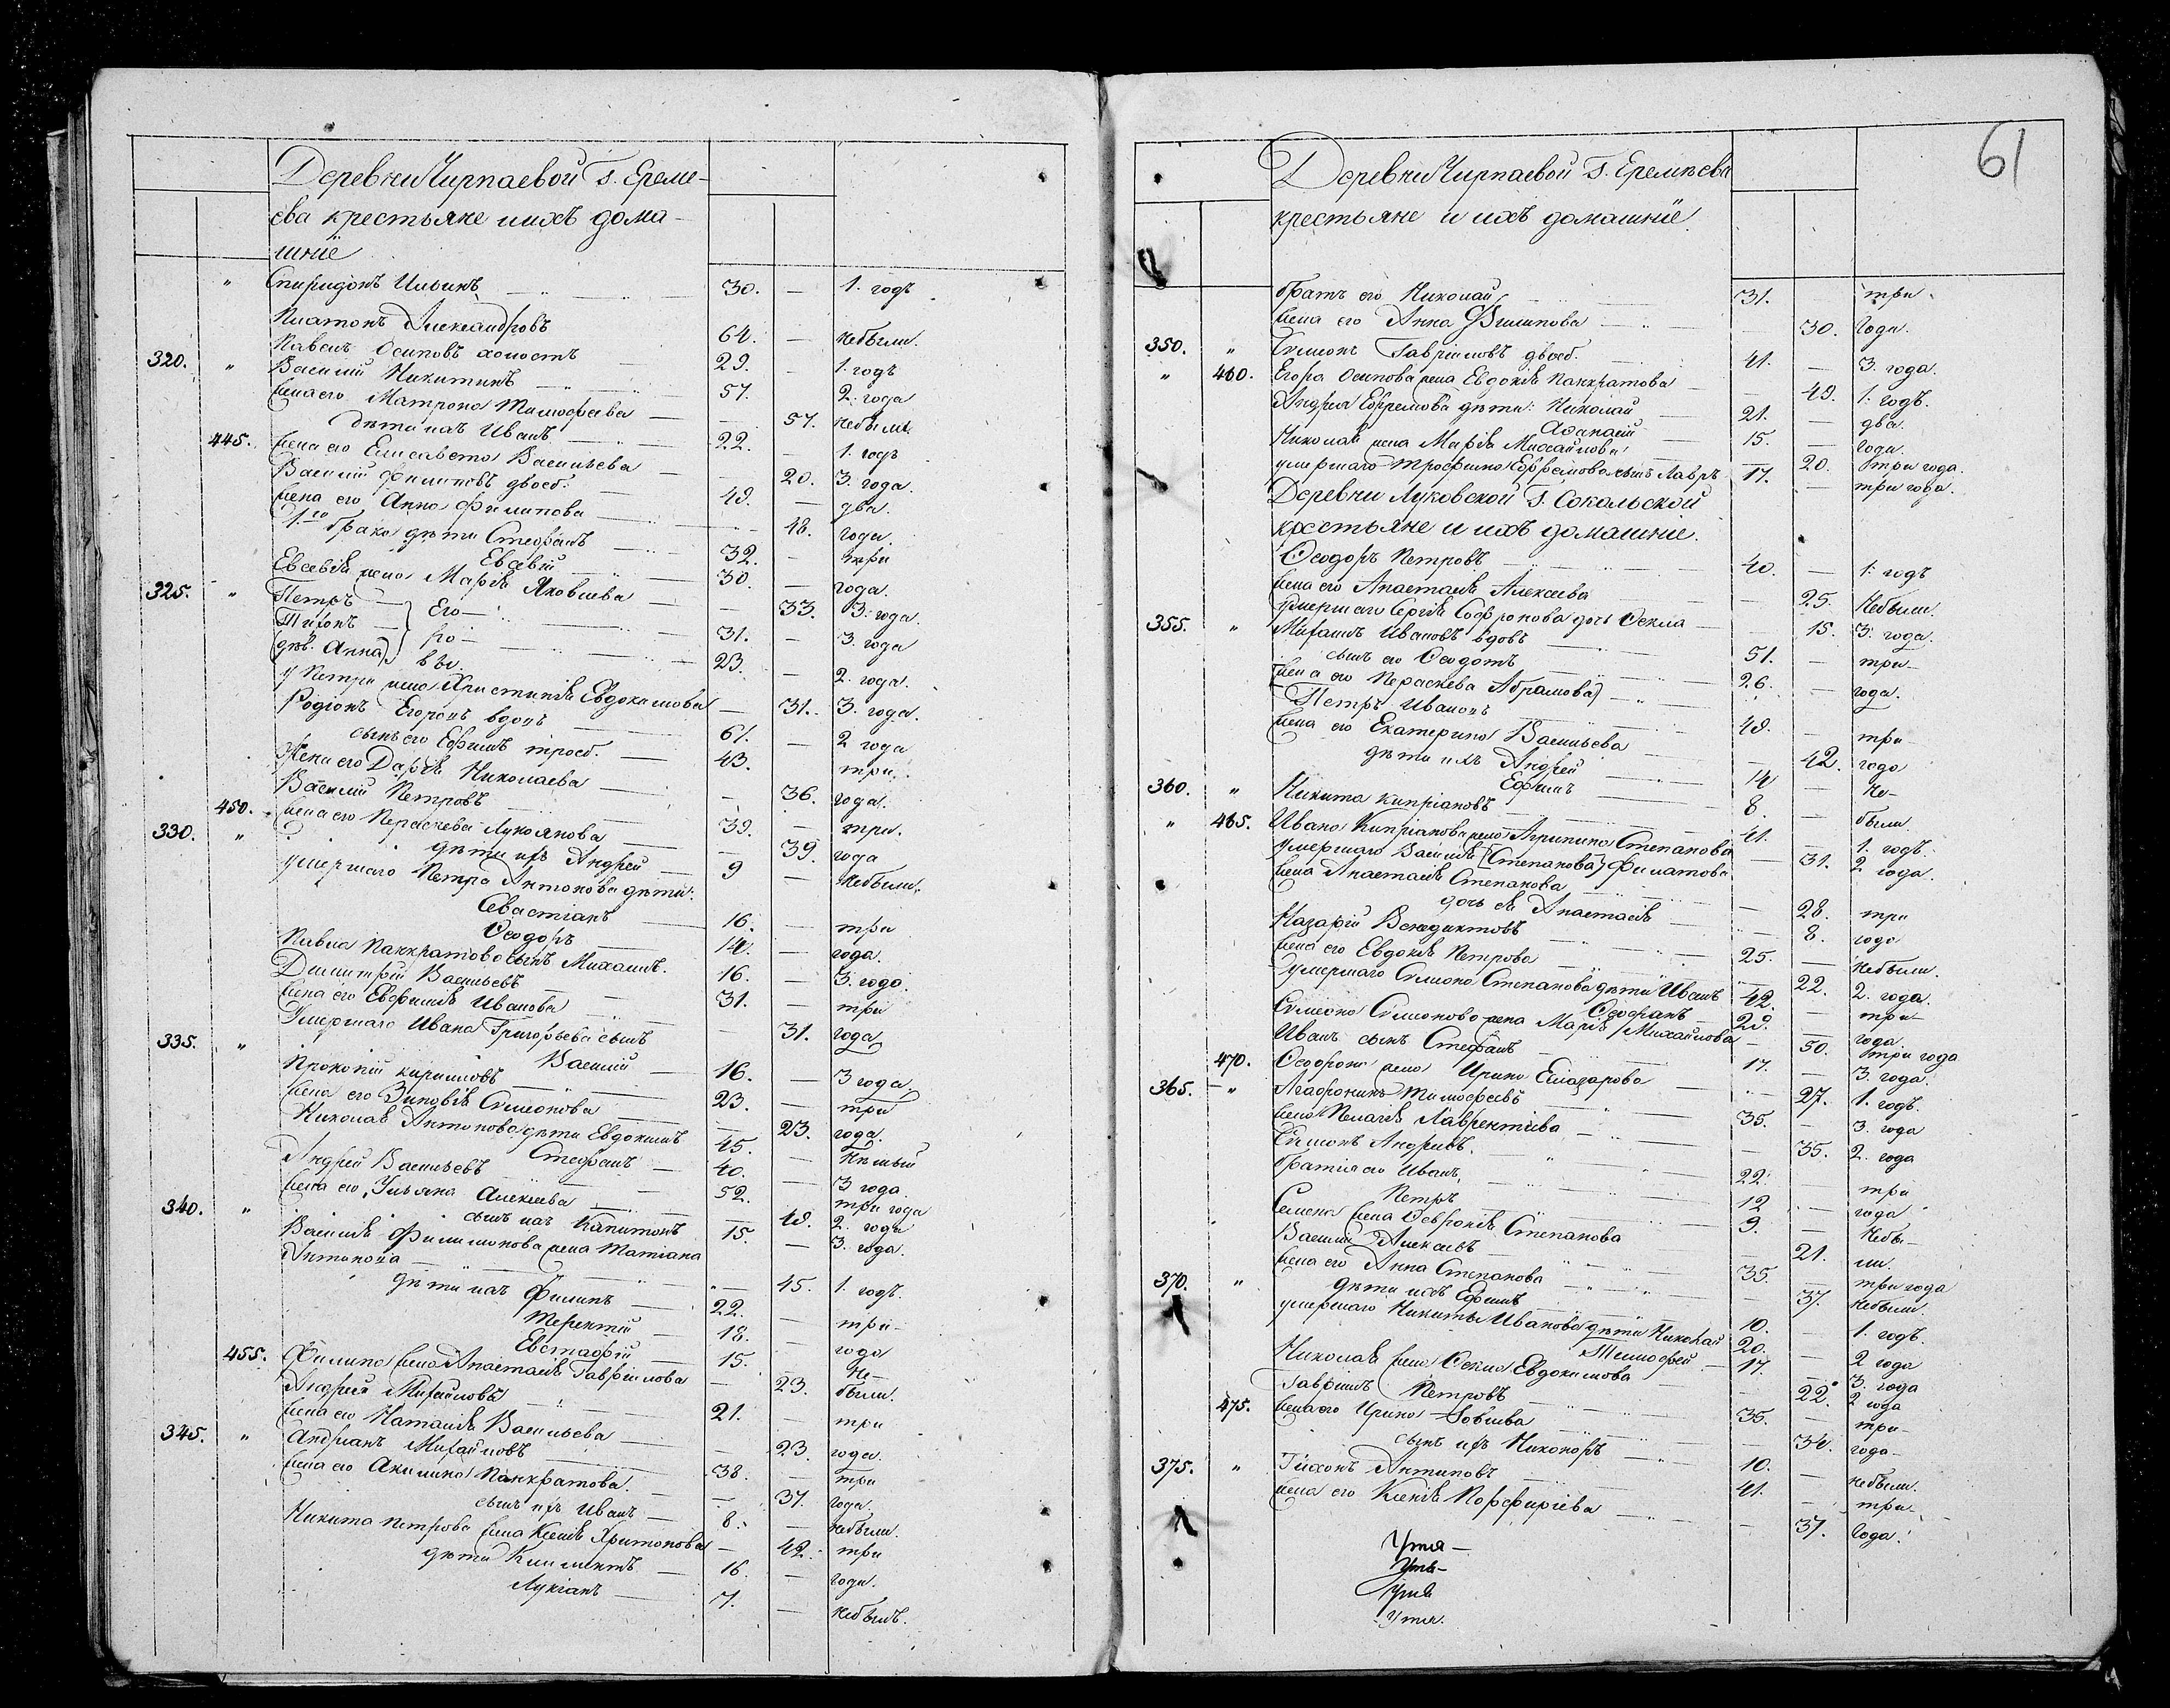 Деревни Чирпаевой Г. Ереме-
ева крестьяне и ихъ дома-
шніе
" Спиридонъ Ильинъ 30. — 1. годъ
Платонъ Александровъ 64. — небыли.
Павелъ Осиповъ холостъ 29. — 1. годъ
320. " Василий Никитинъ 57. 2. года
жена его Матрона Тимофеева — 57. небыли.
дѣти ихъ Иванъ 22. — 1. годъ
445. жена его Елисавета Васильева — 20. 3. года.
Василий Филиповъ двоеб. 49. — два
жена его Анна Филипова — 48. года.
1-го брака дѣти Стефанъ 32. — три
Евсевий 30. — года.
Евсевія жена Марія Яковлева — 33. 3. года.
325. " Петръ — Его 31. — 3. года
Тихонъ — бра 23. — 2. года.
(дѣв. Анна)
у Петра жена Христинія Евдокимова — 31. 3. года.
Родіонъ Егоровъ вдовъ 61. — 2 года
сынъ его Ефимъ троеб. 43. три
Жена его Дарія Николаева — 36. года.
Василий Петровъ 39. — три.
450. жена его Параскева Лукоянова — 39. года
330. " дѣти ихъ Андрей 9 — небыли.
умершаго Петра Антонова дѣти:
Севастіанъ 16. — три
Ѳеодоръ 14. — года.
Павла Панкратова сынъ Михаилъ. 16. — 3. года.
Димитрій Васильевъ 31. — три
жена его Евфимія Иванова — 31. года
335. " Умершаго Ивана Григорьева сынъ
Василий 16. — 3 года
Прокопій Кириловъ 23. — три
жена его Зиновія Симеонова — 23. года.
Николая Антонова дѣти Евдокимъ 45. — Нѣмый
Стефанъ 40. 3 года
Андрей Васильевъ 52. три года
жена его Ульяна Алексеева — 49. 2. года
340. " сынъ ихъ Капитонъ 15. — 3. года.
Василія Филимонова жена Матіана
Антонова " — 45. 1. годъ.
дѣти ихъ Филипъ 22. — три
Терентій 18. — года
Евстафій 15. — Не-
455. Филипа жена Анастасія Гавріилова — 23. были.
Андрей Михайловъ 21. — три
жена его Наталія Васильева — 23. года.
345. " Андріанъ Михайловъ 38. — три
жена его Акилина Панкратова. — 37. года.
сынъ ихъ Иванъ 8. — небыли.
Никита Петрова жена Ксенія Харитонова — 42. три
дѣти Климентъ 16. — года.
Лукіанъ 7. — небылъ.
61
Деревни Чирпаевой Г. Еремѣева
крестьяне и ихъ домашніе.
братъ его Николай 31. три
жена его Анна Филипова — 30. года.
350. " Симеонъ Гавріиловъ двоеб. 41. — 3. года.
" 460. Егора Осипова жена Евдокія Панкратова — 49. 1. годъ.
Андрея Ефремова дѣти: Николай 21. — два
Аѳанасій 15. — года.
Николая жена Марія Михайлова — 20. три года.
умершаго Трофима Ефремова сынъ Лавръ 17. — три года.
Деревни Луковской Г. Сокольской
крестьяне и ихъ домашніе.
Ѳеодоръ Петровъ 40. — 1. годъ
жена его Анастасія Алексеева — 25. Небыли.
Умершаго Сергія Софронова дочь Ѳекла — 15. 3. года.
355. " Михаилъ Ивановъ вдовъ 51. — три
сынъ его Ѳеодотъ 26. — года.
(жена его Параскева Абрамова)
Петръ Ивановъ 49. — три
жена его Екатерина Васильева — 42. года
дѣти ихъ Андрей 14 — Не-
Ефимъ 8. — были
360. " Никита Кипріановъ 41. — 1. годъ.
" 465. Ивана Кипріанова жена Агрипина Степанова — 31. 2 года.
умершаго Василія (Степанова) Филатова
жена Анастасія Степанова — 28. три
дочь ея Анастасія — 8. года
Назарій Венедиктовъ 25. — небыли.
жена его Евдокія Петрова — 22. 2. года.
умершаго Симеона Степанова дѣти Иванъ 42. — три
Ѳеофанъ 29. — года.
Симеона Симеонова жена Марія Михайлова — 50. три года
Иванъ сынъ Стефанъ 17. — 3. года.
470. Ѳеофана жена Ирина Елизарова — 27. 1. годъ.
365. " Агафоникъ Тимофеевъ 35. — 3. года
жена Пелагія Лаврентіева — 35. 2. года
Симеонъ Андреевъ 22. три
братія его Иванъ 12 — года
Петръ 9. — Небы-
Семена жена Ѳевронія Степанова — 21. ли.
Василий Алексеевъ 35. три года
жена его Анна Степанова — 37. Небыли.
370. " дѣти ихъ Ефимъ 10. — 1. годъ.
умершаго Никиты Иванова дѣти Николай 20. — 2 года
Тимофей 17. 3. года
Николая жена Ѳекла Евдокимова — 22. 2 года
Гавріилъ Петровъ 35. три
475. жена его Ирина Іовлева — 34. года
сынъ ихъ Никоноръ 10. — небыли.
375. " Тихонъ Антиповъ 41. — три
жена его Ксенія Порфиріева — 37. года.